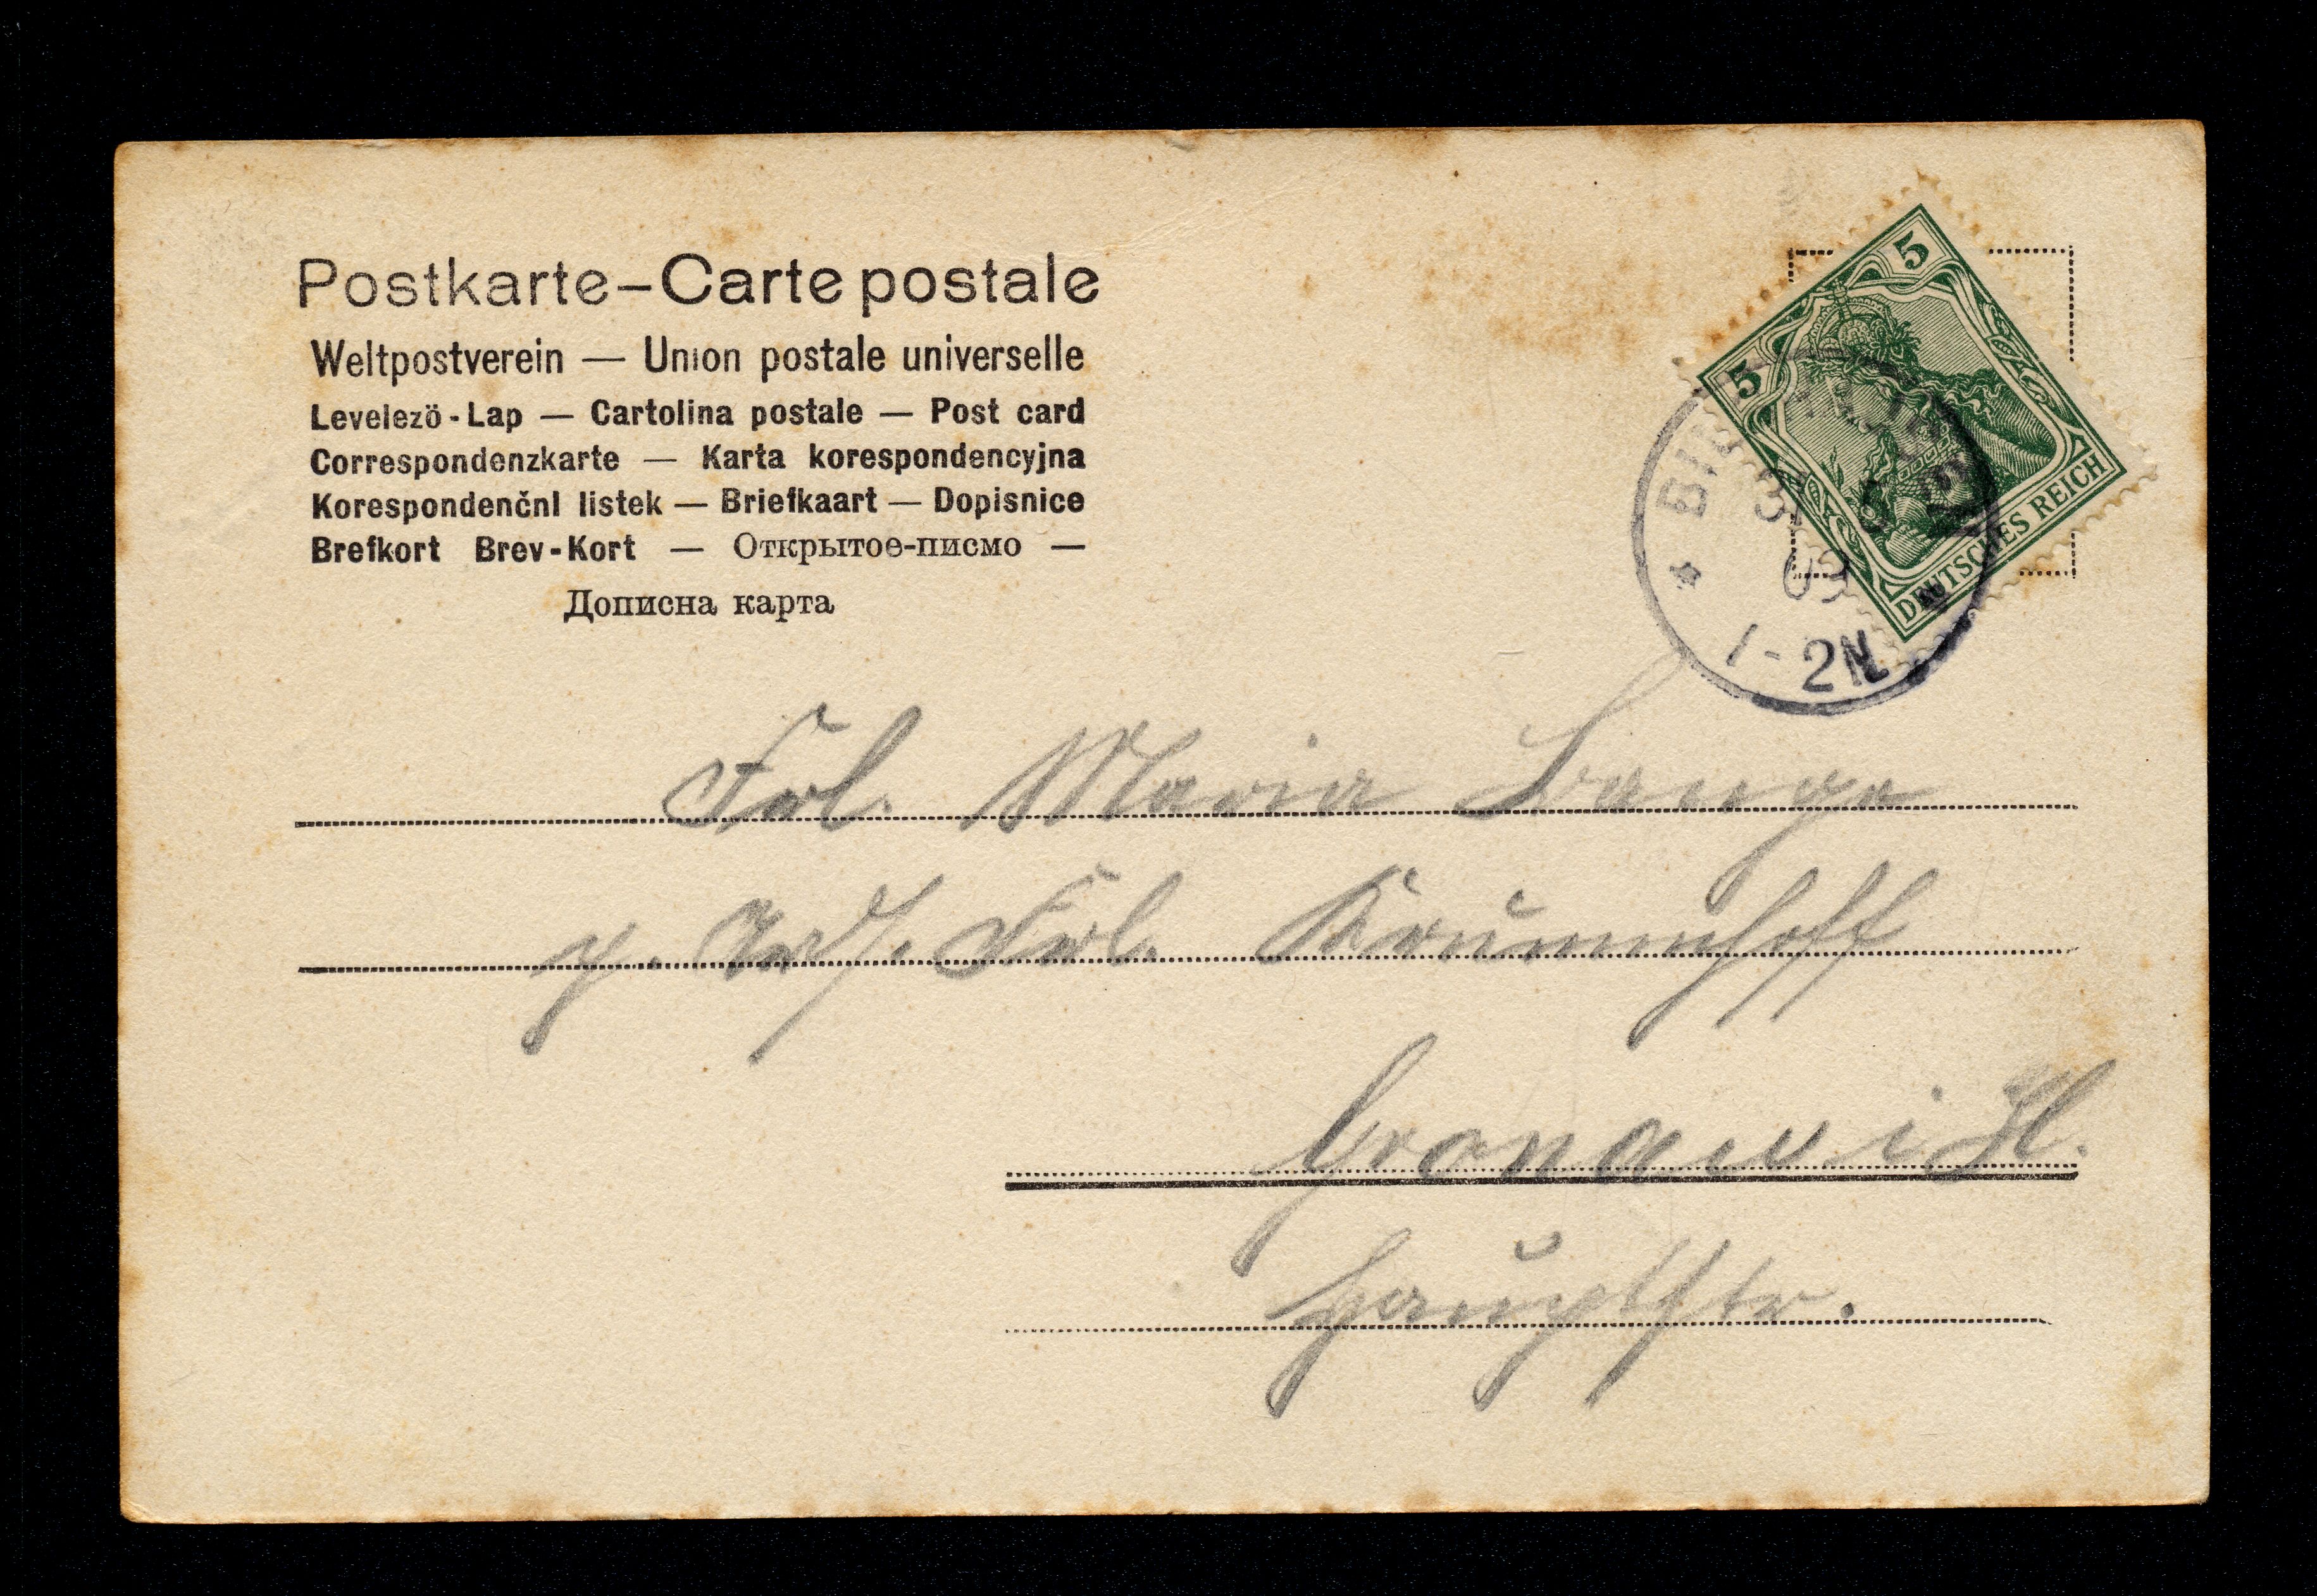 Postkarte – Carte postale
Weltpostverein — Union postale universelle
Levelezö-Lap — Cartolina postale — Post card
Correspondenzkarte — Karta korespondencyjna
Korespondenčnl listek — Briefkaart — Dopisnice
Brefkort Brev-Kort — Открытое-писмо —
Дописна карта
5
5
DEUTSCHES REICH
1-2N
Frl. Maria Lange
p. Adr. Frl. Krummhoff
Gronau i H.
Hauptstr.